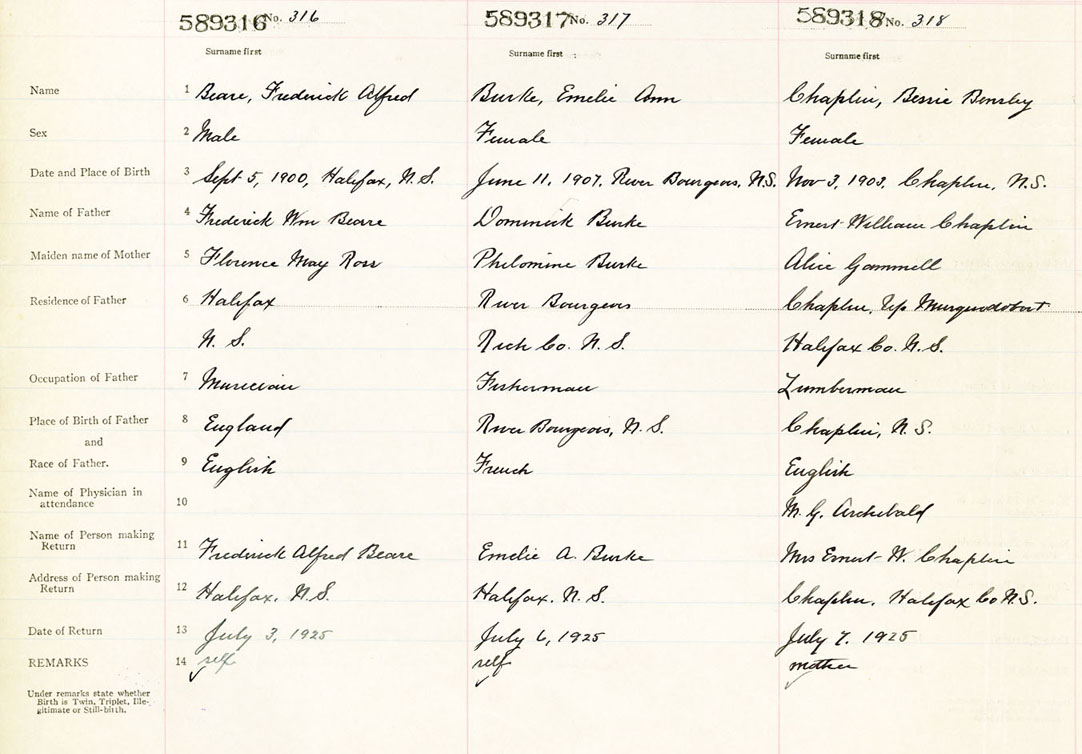 589316 No. 316 589317 No. 317 589318 No. 318
Surname first Surname first Surname first
Name 1 Beare, Frederick Alfred Burke, Emelie Ann Chaplin, Bessie Bensley
Sex 2 Male Female Female
Date and Place of Birth 3 Sept 5, 1900, Halifax, N.S. June 11, 1907, River Bourgeois, N.S. Nov 3, 1903, Chaplin, N.S.
Name of Father 4 Frederick Wm Beare Dominick Burke Ernest William Chaplin
Maiden name of Mother 5 Florence May Ross Phelomine Burke Alice Gammell
Residence of Father 6 Halifax River Bourgeois Chaplin, Up Musquodoboit
N. S. Rich Co. N. S. Halifax Co. N. S.
Occupation of Father 7 Musician Fisherman Lumberman
Place of Birth of Father 8 England River Bourgeois, N. S. Chaplin, N. S.
and
Race of Father. 9 English French English
Name of Physician in
attendance 10 M. G. Archibald
Name of Person making
Return 11 Frederick Alfred Beare Emelie A. Burke Mrs Ernest W. Chaplin
Address of Person making
Return 12 Halifax, N.S. Halifax, N. S. Chaplin, Halifax Co N.S.
Date of Return 13 July 3, 1925 July 6, 1925 July 7, 1925
REMARKS 14 self self mother
Under remarks state whether
Birth is Twin, Triplet, Ille-
gitimate or Still-birth.